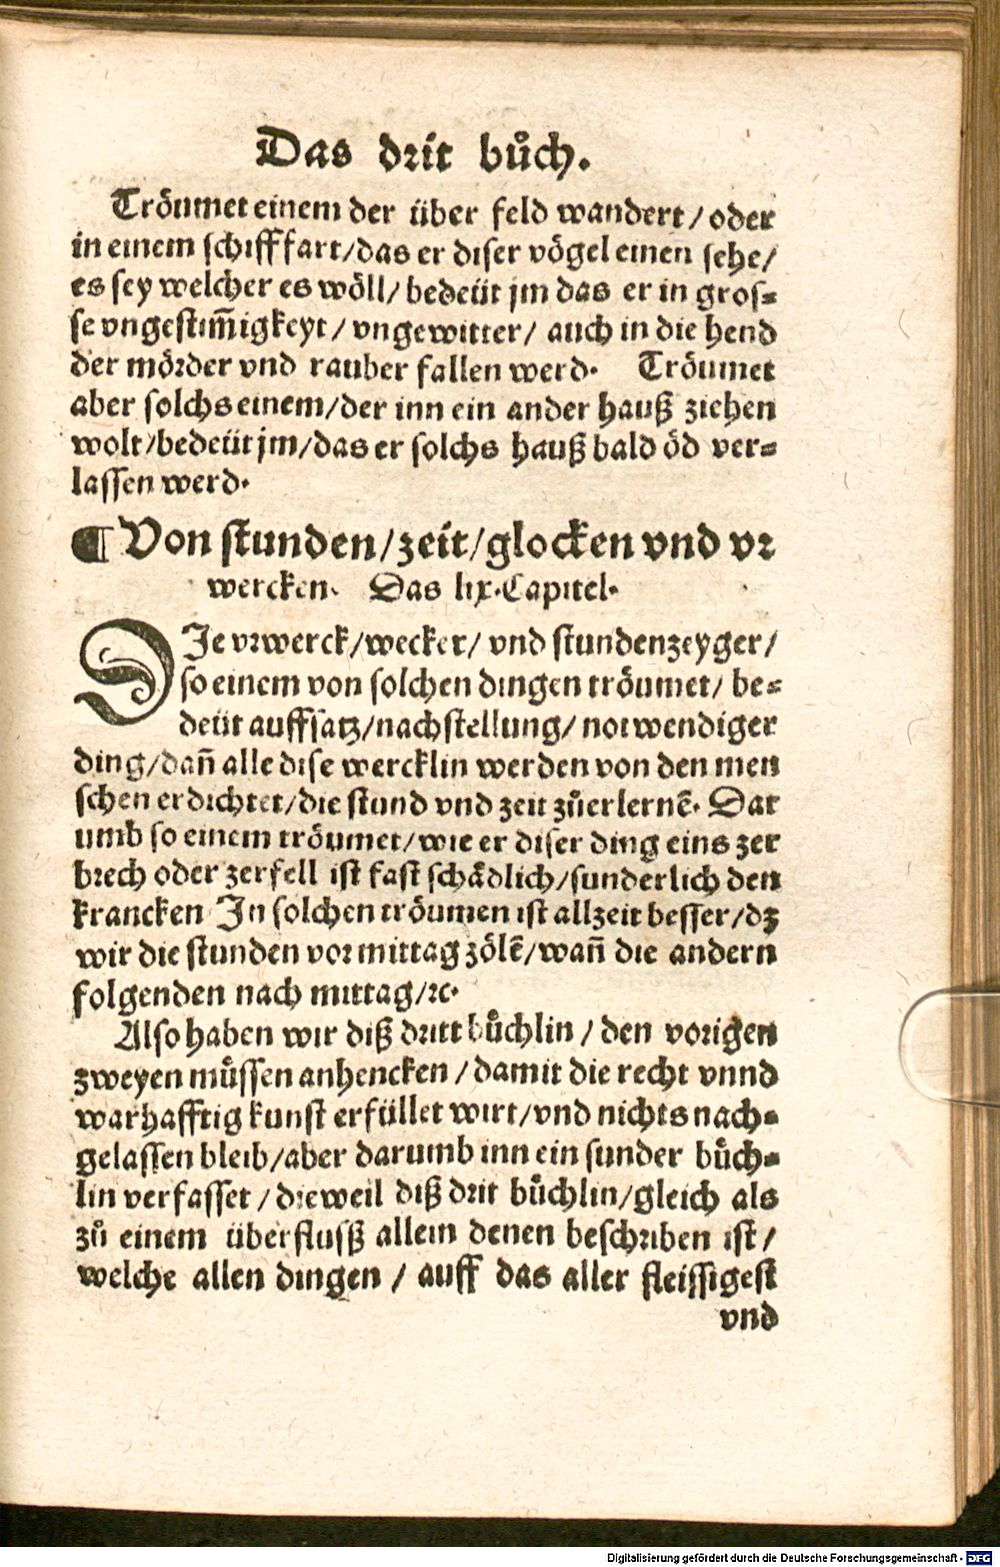 Das drit bůch.
Tröumet einem der über feld wandert/ oder
in einem schifffart/das er diser vögel einen sehe/
es sey welcher es wöll/ bedeüt jm das er in gros-
se vngestim̄igkeyt/ vngewitter/ auch in die hend
der mörder vnd rauber fallen werd. Tröumet
aber solchs einem/der inn ein ander hauß ziehen
wolt/bedeüt jm/das er solchs hauß bald öd ver-
lassen werd.
¶ Von stunden/zeit/glocken vnd vr
wercken. Das lix.Capitel.
DIe vrwerck/wecker/ vnd stundenzeyger/
so einem von solchen dingen tröumet/ be-
deüt auffsatz/nachstellung/ notwendiger
ding/dan̄ alle dise wercklin werden von den men
schen erdichtet/die stund vnd zeit zůerlernē. Dar
umb so einem tröumet/wie er diser ding eins zer
brech oder zerfell ist fast schådlich/sunderlich den
krancken In solchen tröumen ist allzeit besser/dz
wir die stunden vor mittag zölē/wan̄ die andern
folgenden nach mittag/ꝛc.
Also haben wir diß dritt bůchlin / den vorigen
zweyen můssen anhencken / damit die recht vnnd
warhafftig kunst erfüllet wirt/vnd nichts nach-
gelassen bleib/aber darumb inn ein sunder bůch-
lin verfasset / dieweil diß drit bůchlin/gleich als
zů einem überflusß allein denen beschriben ist/
welche allen dingen / auff das aller fleissigest
vnd
Digitalisierung gefördert durch die Deutsche Forschungsgemeinschaft - DFG